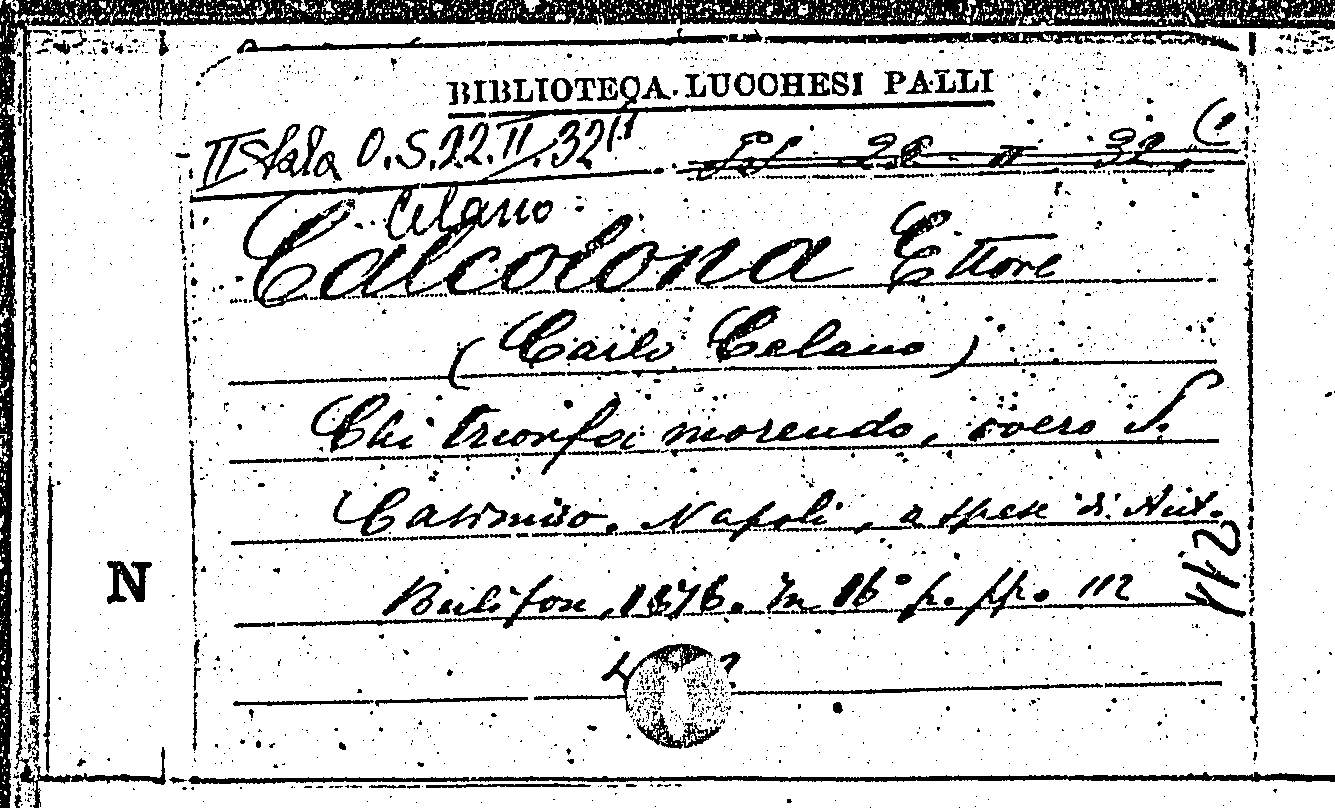 BIBLIOTECA LUCCHESI PALLI
II Sala O.S.22.II.32(1
22 II 32.
Celano
Calcolona Ettore
(Carlo Celano)
Chi trionfa morendo, overo S.
Casimiro. Napoli, a spese di Ant.
Bulifon, 1676. In 16° p. pp. 112
112
N